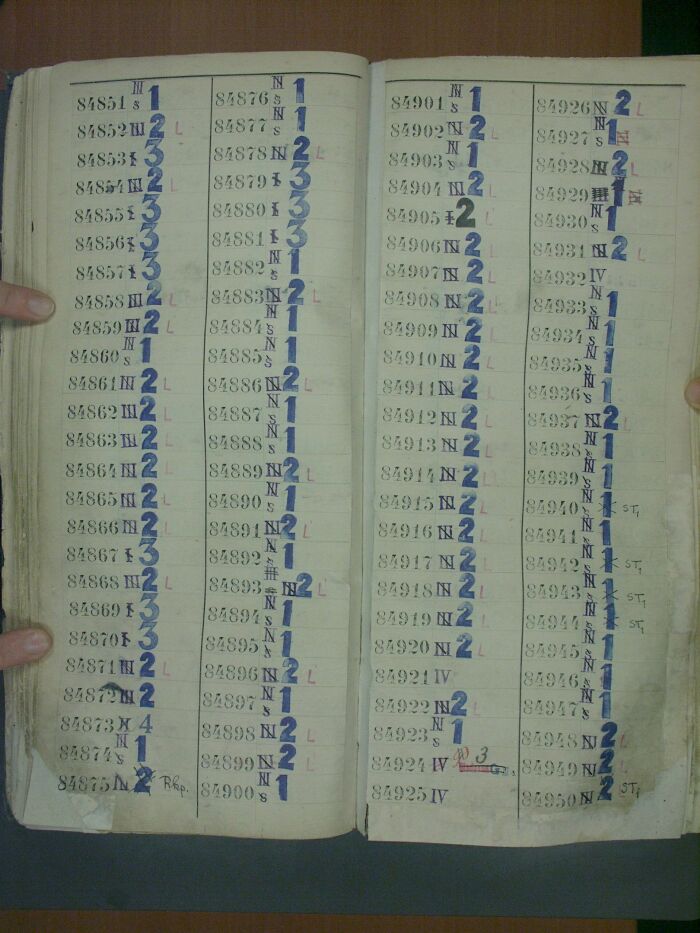 84851 1
84852 2 L
84853 I 3
84854 2 L
84855 I 3
84856 I 3
84857 I 3
84858 2 L
84859 2 L
84860 1
84861 2 L
84862 2 L
84863 2 L
84864 2 L
84865 2 L
84866 2 L
84867 I 3
84868 2 L
84869 I 3
84870 I 3
84871 2 L
84872 2
84873 4
84874 1
84875 2 Rkp.
84876 1
84877 1
84878 2 L
84879 I 3
84880 I 3
84881 I 3
84882 1
84883 2 L
84884 1
84885 1
84886 2 L
84887 1
84888 1
84889 2 L
84890 1
84891 2 L
84892 1
84893 2 L
84894 1
84895 1
84896 2 L
84897 1
84898 2 L
84899 2 L
84900 1
84901 1
84902 2 L
84903 1
84904 2 L
84905 I 2 L
84906 2 L
84907 2 L
84908 2 L
84909 2 L
84910 2 L
84911 2 L
84912 2 L
84913 2 L
84914 2 L
84915 2 L
84916 2 L
84917 2 L
84918 2 L
84919 2 L
84920 2 L
84921 IV
84922 2 L
84923 1
84924 IV 3
84925 IV
84926 2 L
84927 1
84928 2 L
84929 1
84930 1
84931 2 L
84932 IV
84933 1
84934 1
84935 1
84936 1
84937 2 L
84938 1
84939 1
84940 1 ST,
84941 1
84942 1 ST,
84943 1 ST,
84944 1 ST,
84945 1
84946 1
84947 1
84948 2 L
84949 2 L
84950 2 ST,